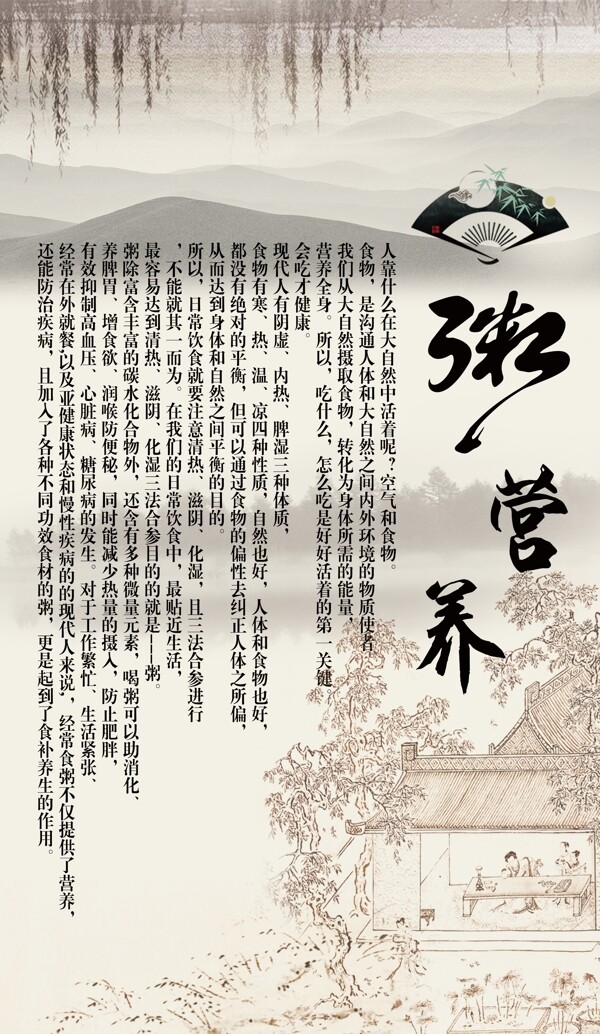 粥营养
人靠什么在大自然中活着呢？空气和食物。
食物，是沟通人体和大自然之间内外环境的物质使者，
我们从大自然摄取食物，转化为身体所需的能量，
营养全身。所以，吃什么，怎么吃是好好活着的第一关键，
会吃才健康。
现代人有阴虚、内热、脾湿三种体质，
食物有寒、热、温、凉四种性质，自然也好，人体和食物也好，
都没有绝对的平衡，但可以通过食物的偏性去纠正人体之所偏，
从而达到身体和自然之间平衡的目的。
所以，日常饮食就要注意清热、滋阴、化湿，且三法合参进行
，不能就其一而为。在我们的日常饮食中，最贴近生活，
最容易达到清热、滋阴、化湿三法合参目的的就是——粥。
粥除富含丰富的碳水化合物外，还含有多种微量元素，喝粥可以助消化、
养脾胃、增食欲、润喉防便秘，同时能减少热量的摄入，防止肥胖，
有效抑制高血压、心脏病、糖尿病的发生。对于工作繁忙、生活紧张、
经常在外就餐,以及亚健康状态和慢性疾病的的现代人来说，经常食粥不仅提供了营养，
还能防治疾病，且加入了各种不同功效食材的粥，更是起到了食补养生的作用。